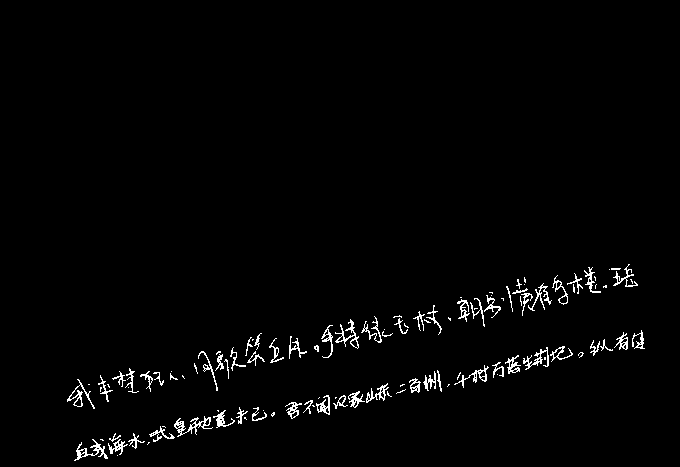 我本楚狂人,凤歌笑孔丘。手持绿玉杖,朝别黄鹤楼。五岳
血成海水,武皇开边意未已。君不闻汉家山东二百州,千村万落生荆杞。纵有健